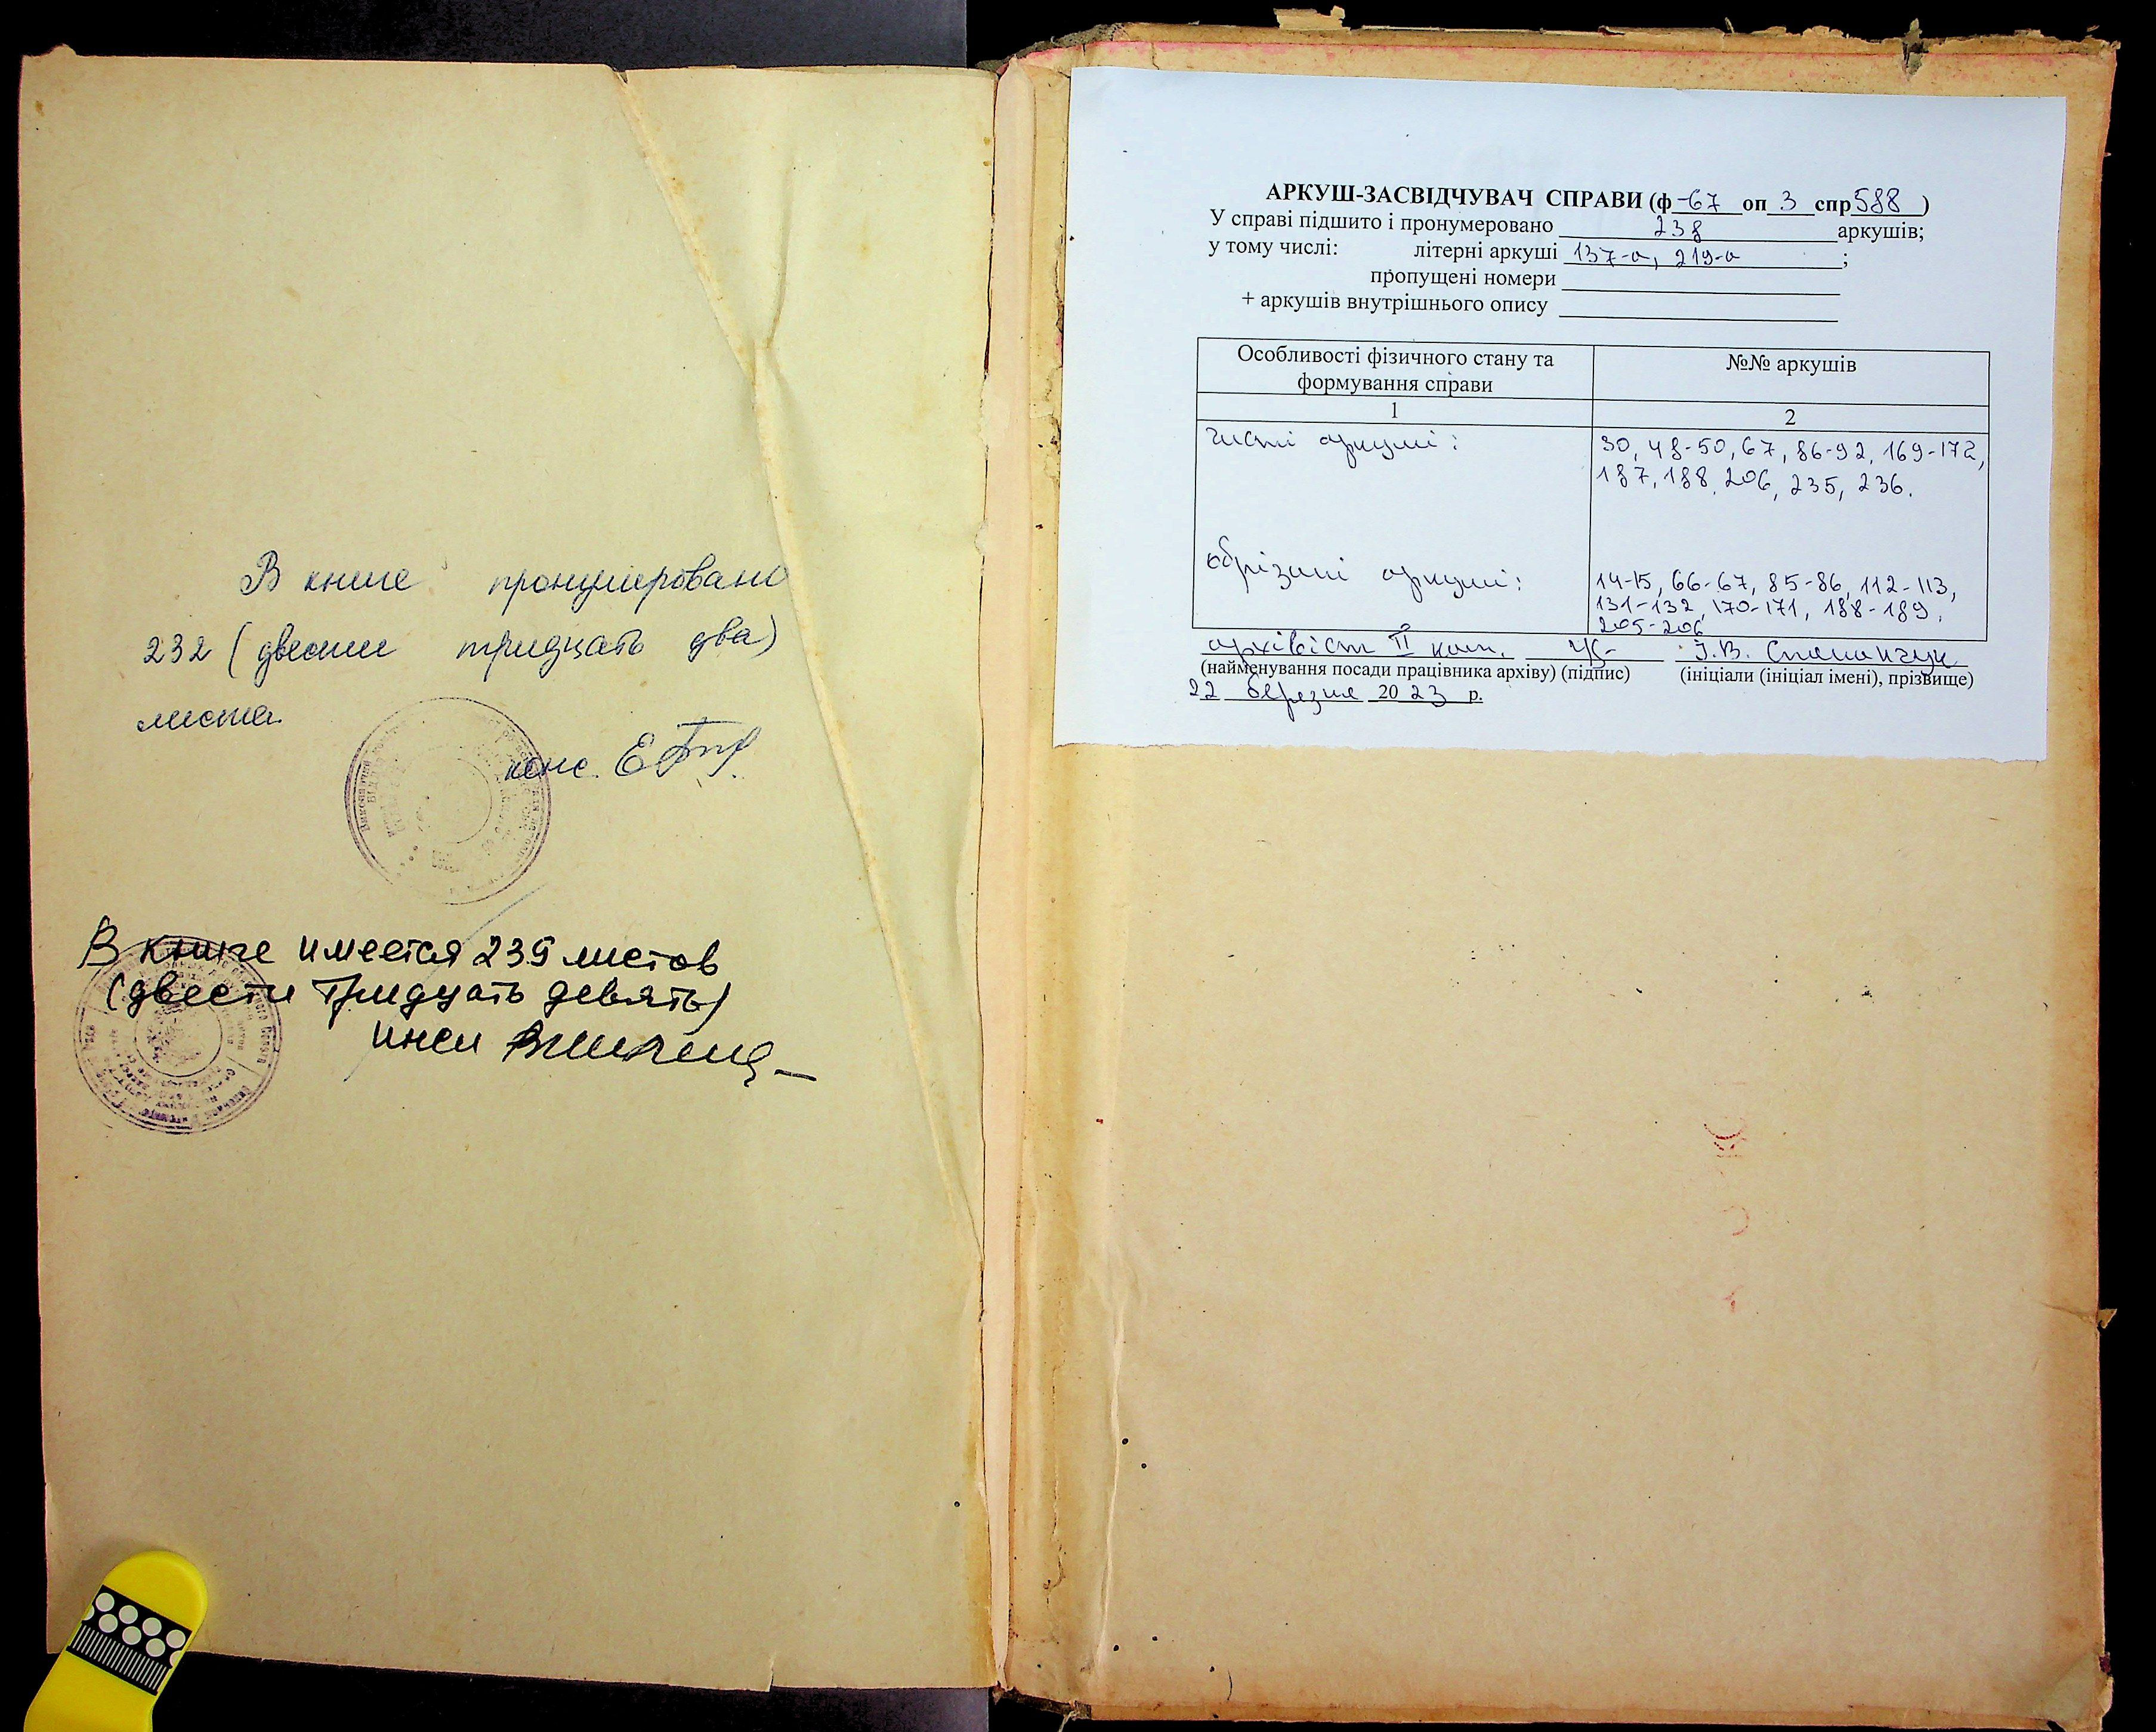 В книге пронумеровано
232 (двести тридцать два)
листа.
В книге имеется 239 листов
(двести тридцать девять)
АРКУШ-ЗАСВІДЧУВАЧ СПРАВИ (ф-67 оп 3 спр 588 )
У справі підшито і пронумеровано 238 аркушів;
у тому числі: літерні аркуші 137-а, 219-а ;
пропущені номери
+ аркушів внутрішнього опису
Особливості фізичного стану та формування справи
№№ аркушів
1
2
чисті аркуші:
30, 48-50, 67, 86-92, 169-172,
187, 188, 206, 235, 236.
обрізані аркуші:
14-15, 66-67, 85-86, 112-113,
131-132, 170-171, 188-189,
205-206
архівіст II кат. І.В.
(найменування посади працівника архіву) (підпис) (ініціали (ініціал імені), прізвище)
22 березня 2023 р.